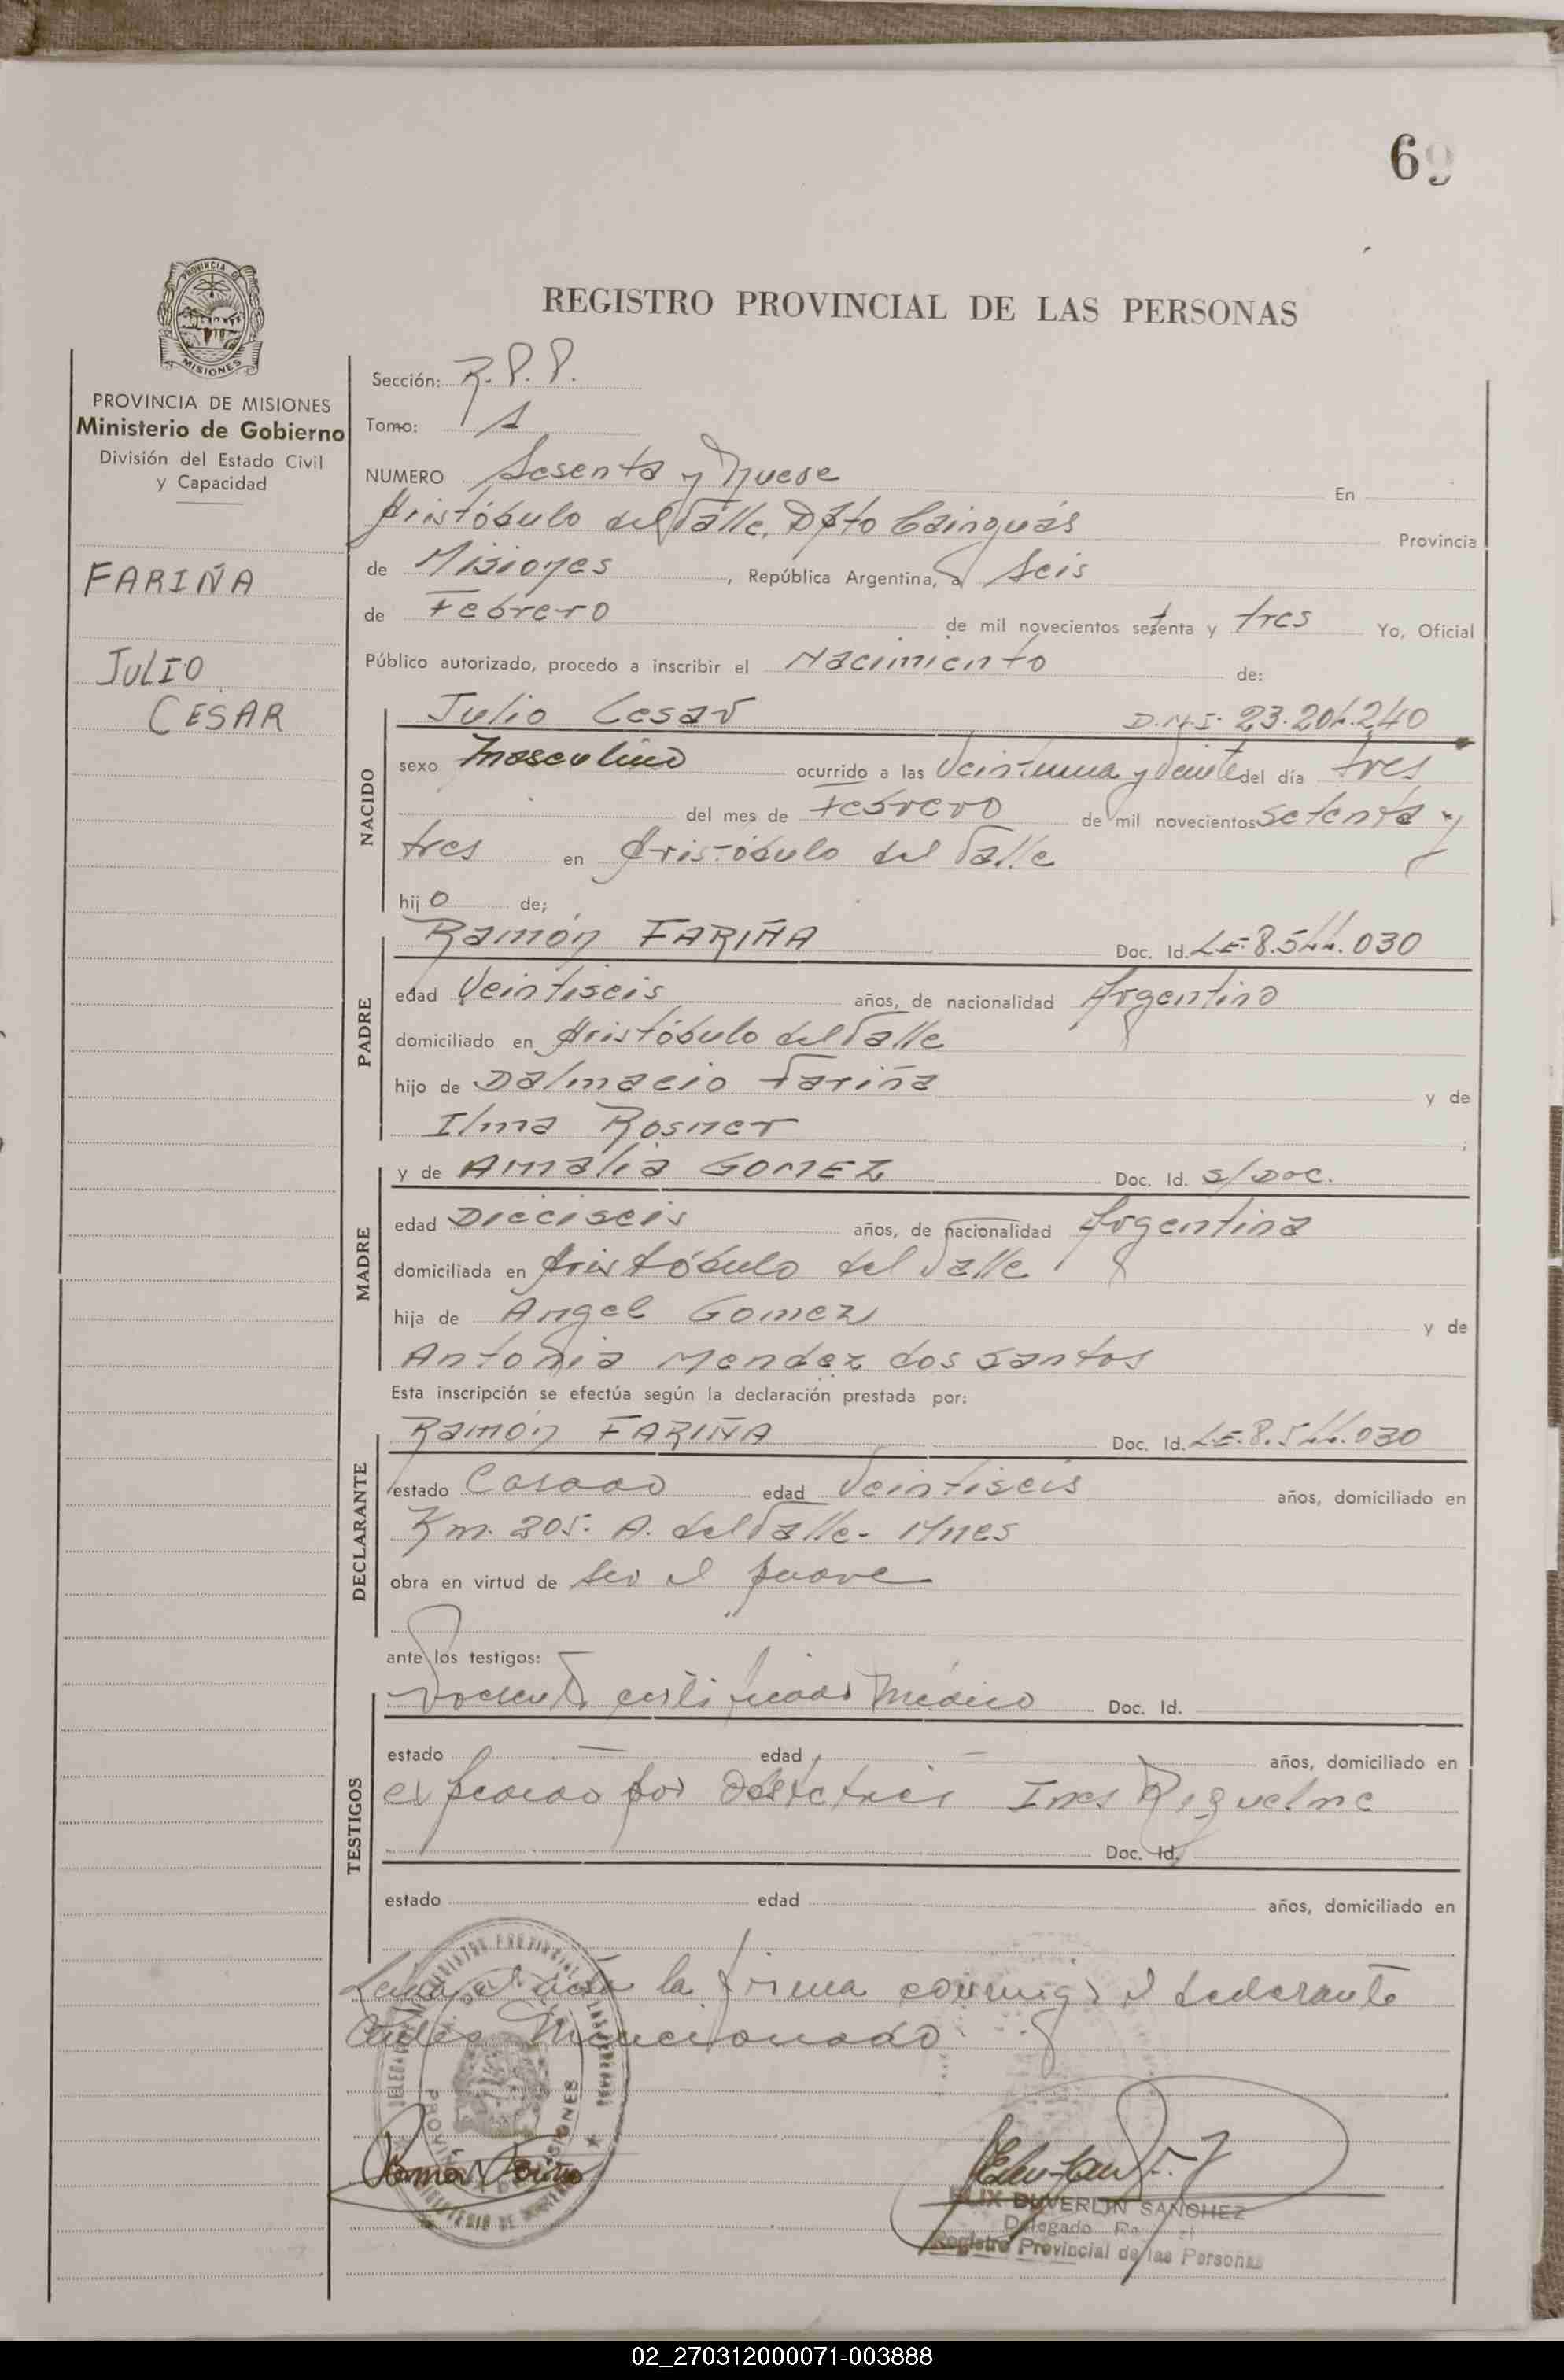 69
PROVINCIA DE
MISIONES
REGISTRO PROVINCIAL DE LAS PERSONAS
PROVINCIA DE MISIONES
Ministerio de Gobierno
División del Estado Civil
y Capacidad
FARIÑA
JULIO
CESAR
Sección: R.P.P.
Tomo: 1
NUMERO Sesenta y Nueve En
Aristóbulo del Valle, Dpto Cainguás Provincia
de Misiones, República Argentina, a Seis
de Febrero de mil novecientos setenta y tres Yo, Oficial
Público autorizado, procedo a inscribir el Nacimiento de:
NACIDO
Julio Cesar D.N.I. 23.204.240
sexo masculino ocurrido a las Veintiuna y veinte del día tres
del mes de Febrero de mil novecientos setenta y
tres en Aristóbulo del Valle
hijo de;
PADRE
Ramón FARIÑA Doc. Id. L.E. 8.544.030
edad Veintiseis años, de nacionalidad Argentino
domiciliado en Aristóbulo del Valle
hijo de Dalmacio Fariña y de
Ilma Rosner ;
MADRE
y de Amalia GOMEZ Doc. Id. s/Doc.
edad Dieciseis años, de nacionalidad Argentina
domiciliada en Aristóbulo del Valle
hija de Angel Gomez y de
Antonia Mendez dos Santos
Esta inscripción se efectúa según la declaración prestada por:
DECLARANTE
Ramón FARIÑA Doc. Id. L.E. 8.544.030
estado Casado edad Veintiseis años, domiciliado en
Km. 205. A. del Valle- Mnes
obra en virtud de ser el padre
ante los testigos:
TESTIGOS
certificado Medico Doc. Id.
estado — edad — años, domiciliado en
por Obstetris Ines Riquelme
Doc. Id.
estado edad años, domiciliado en
Leida el acta la firma conmigo el declarante
antes Mencionado
PROVINCIA MISIONES
Ramón Fariña
FELIX DUVERLIN SANCHEZ
Delegado
Registro Provincial de las Personas
02_270312000071-003888